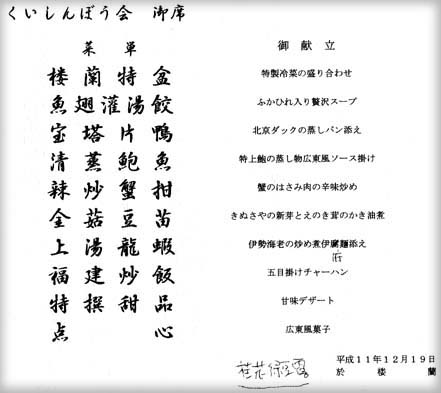 くいしんぼう会 御席
菜 単
楼 蘭 特 盆
魚 翅 灌 湯 餃
宝 塔 片 鴨
清 蒸 鮑 魚
辣 炒 蟹 拑
全 菇 豆 苗
上 湯 龍 蝦
福 建 炒 飯
特 撰 甜 品
点 心
御 献 立
特製冷菜の盛り合わせ
ふかひれ入り贅沢スープ
北京ダックの蒸しパン添え
特上鮑の蒸し物広東風ソース掛け
蟹のはさみ肉の辛味炒め
きぬさやの新芽とえのき茸のかき油煮
伊勢海老の炒め煮伊腐麺添え
府
五目掛けチャーハン
甘味デザート
広東風菓子
桂花绿豆露
平成11年12月19日
於 楼 蘭